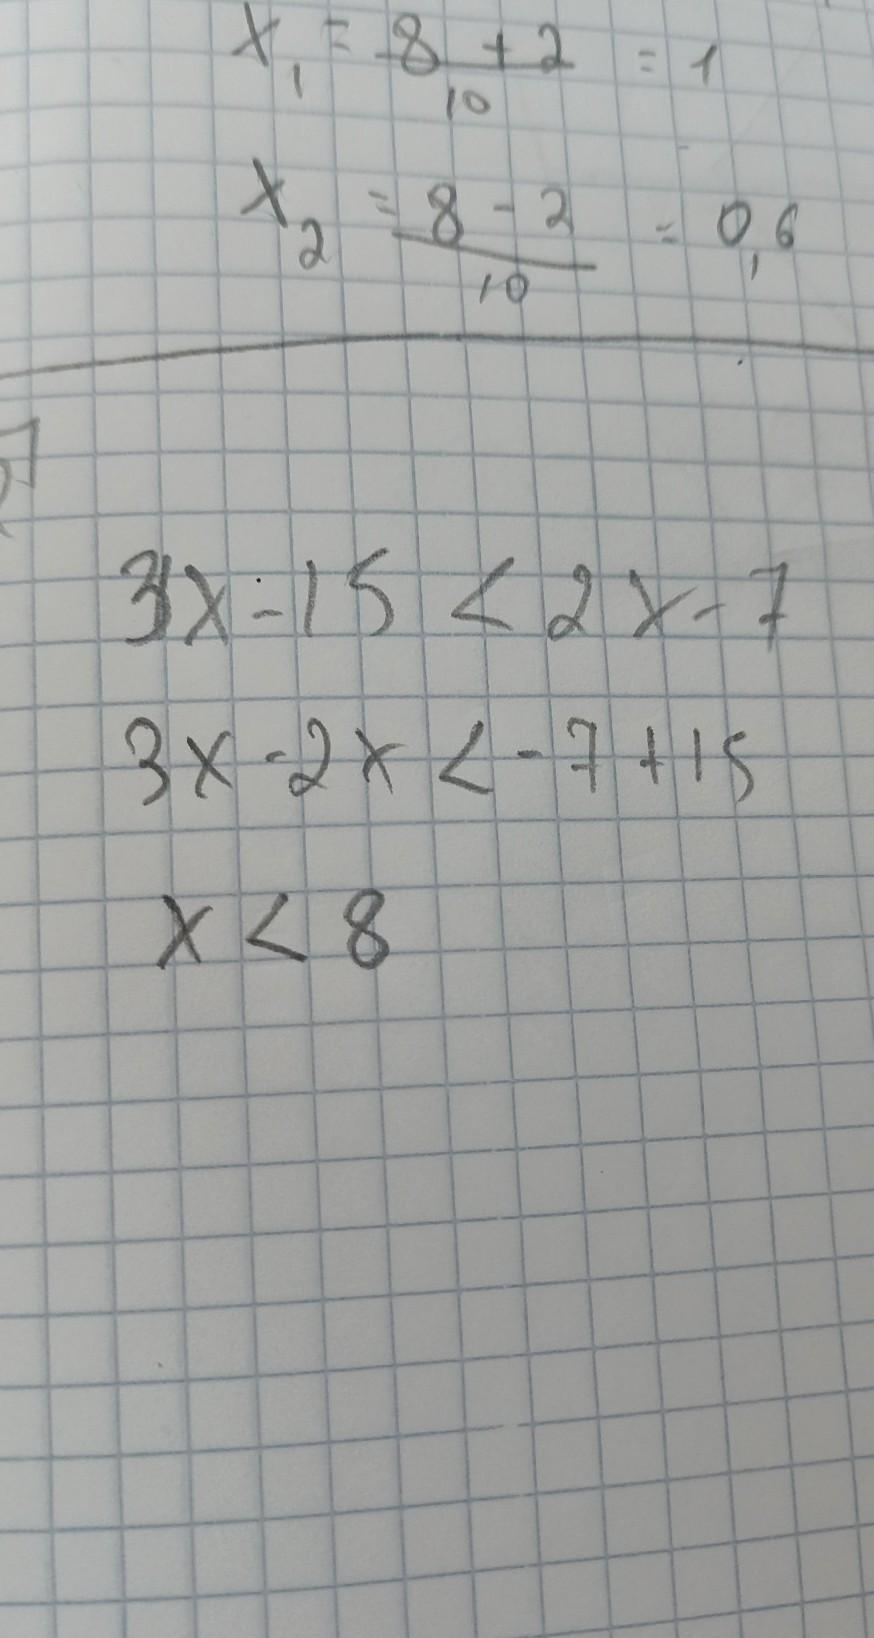 x₁ = 8 + 2 / 10 = 1
x₂ = 8 - 2 / 10 = 0,6
3x - 15 < 2x - 7
3x - 2x < - 7 + 15
x < 8